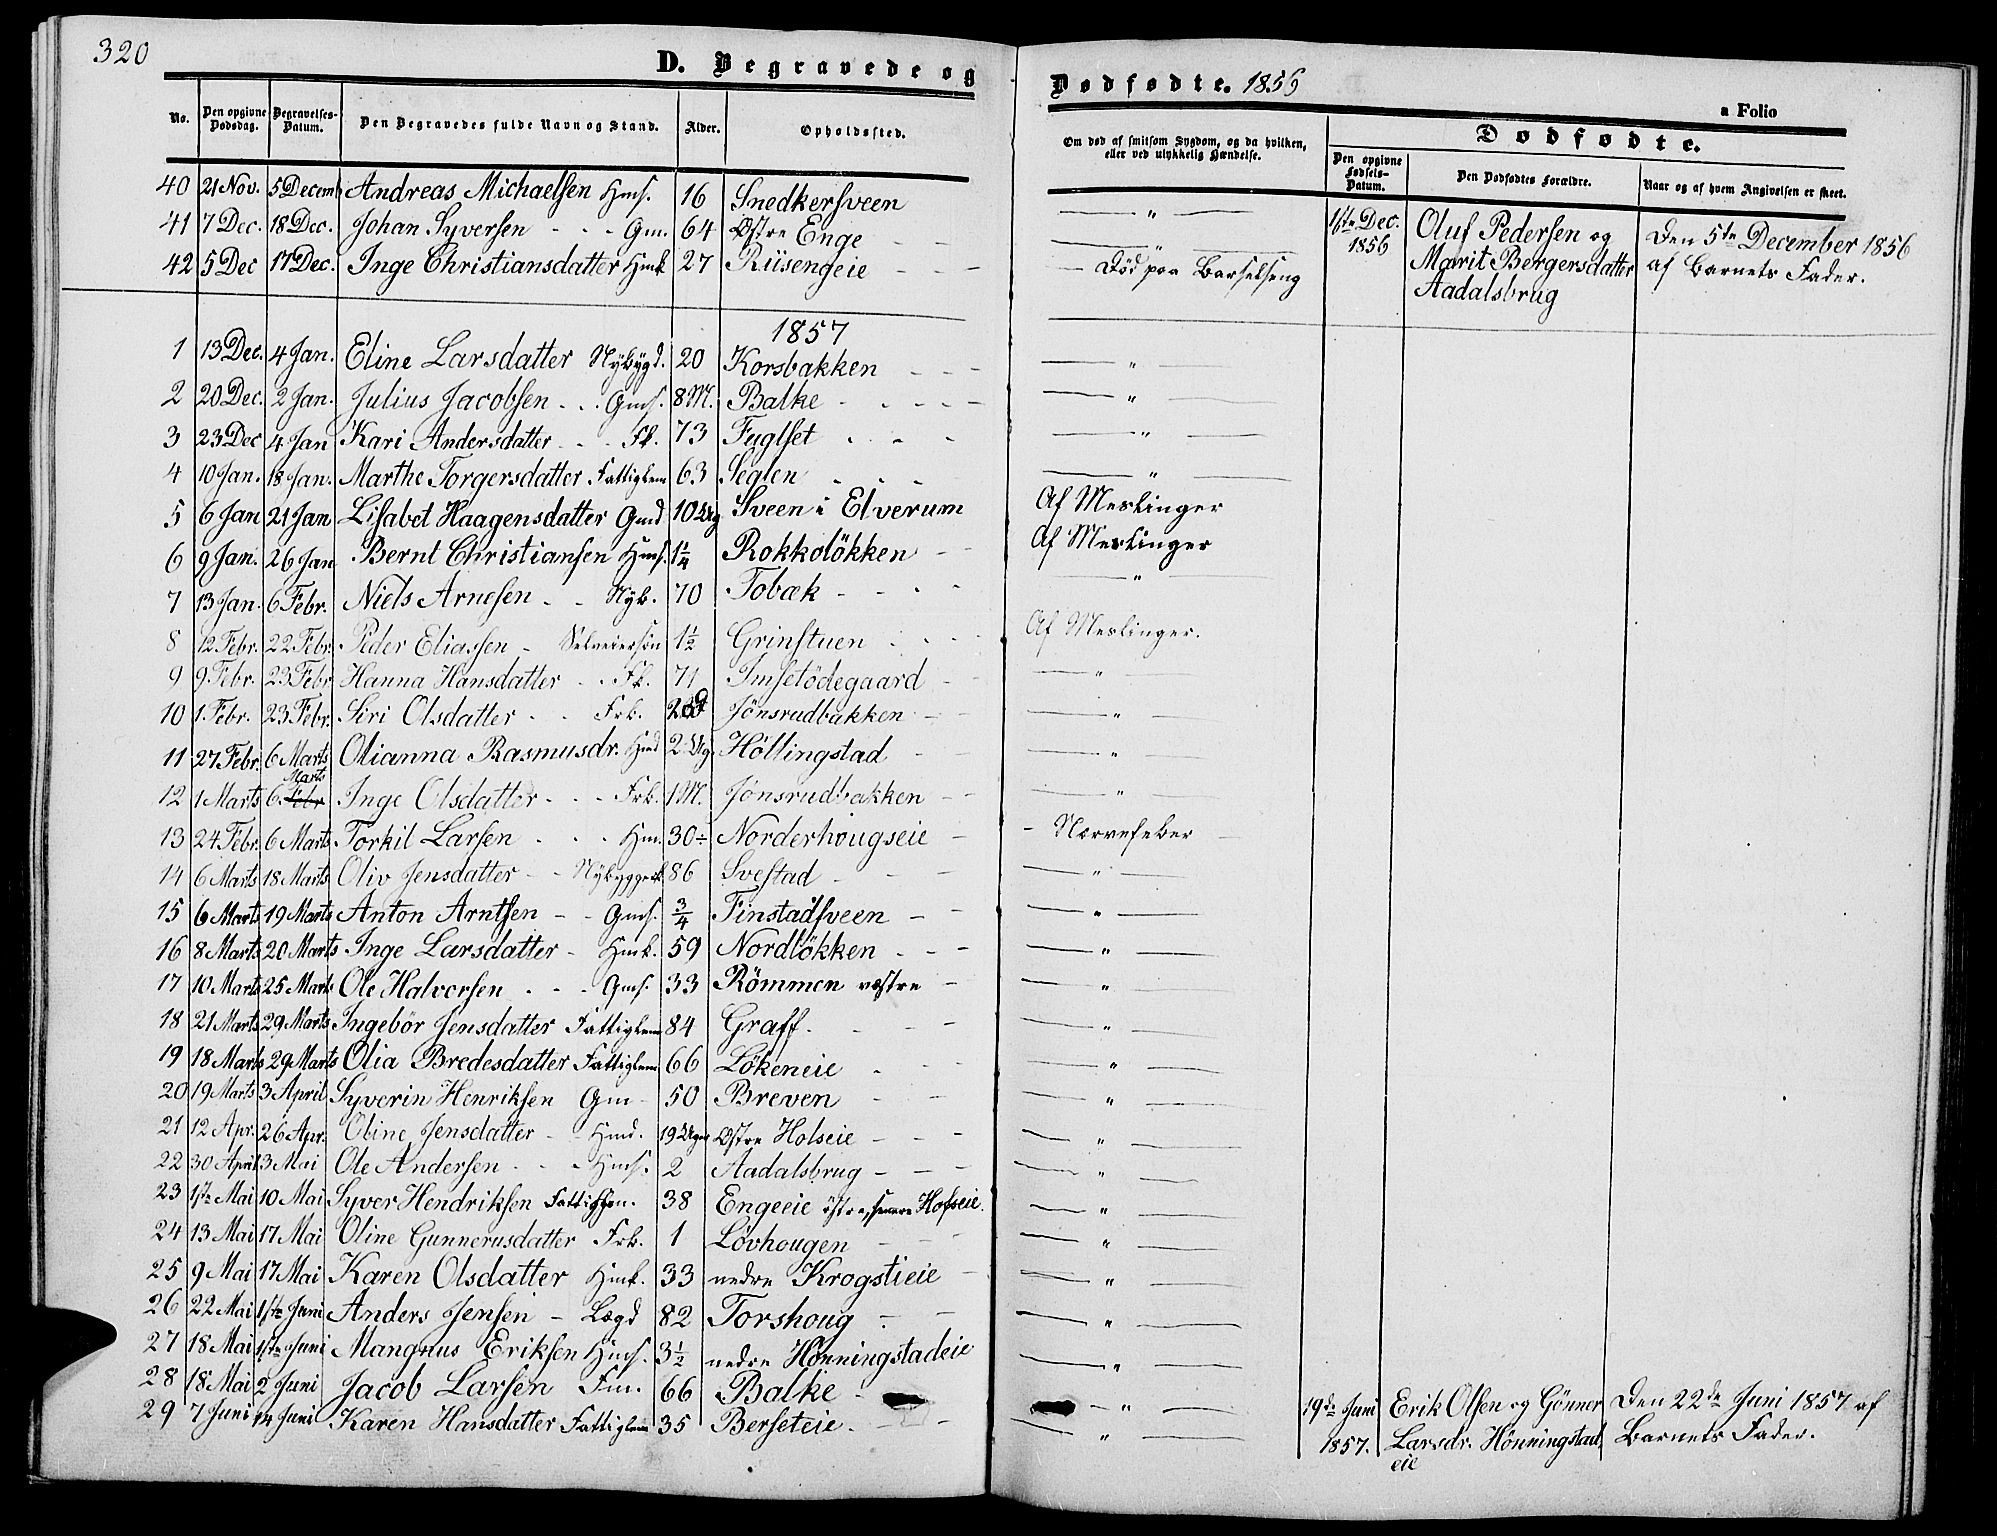 320
D. Begravede og
No. Den opgivne Dødsdag. Begravelses-Datum. Den Begravedes fulde Navn og Stand. Alder. Opholdssted.
40 21 Nov. 5 Decemb Andreas Michaelsen Hms. 16 Snedkersveen
41 7 Dec. 18 Dec. Johan Syversen - - - Gm. 64 Østre Enge
42 5 Dec 17 Dec. Inge Christiansdatter Hmk 27 Riisengeie
1857
1 13 Dec. 4 Jan. Eline Larsdatter Nybygd. 20 Korsbakken
2 20 Dec. 2 Jan. Julius Jacobsen - - - Gms. 8 M. Balke
3 23 Dec 4 Jan Kari Andersdatter - - - Fk. 73 Fuglset
4 10 Jan. 18 Jan. Marthe Torgersdatter Fattiglem 63 Seglen
5 6 Jan 21 Jan Lisabet Haagensdatter Gmd 10 Ug Sveen i Elverum
6 9 Jan. 26 Jan Bernt Christiansen Hms. 1 1/4 Rokkoløkken
7 13 Jan. 6 Febr. Niels Arnesen - - Nyb. 70 Tobæk
8 12 Febr. 22 Febr. Peder Eliassen - Selveiersön 1 1/2 Grinstuen
9 9 Febr. 23 Febr Hanna Hansdatter - - Fk. 71 Imsetödegaard
10 1. Febr. 23 Febr. Siri Olsdatter - - Frk. Jönsrudbakken
11 27 Febr. 6 Marts Olianna Rasmusdr. Hmd 2 Ug. Höllingstad
Marts
12 1 Marts 6. Febr Inge Olsdatter - - - Frk. 1 M. Jönsrudbakken
13 24 Febr. 6 Marts Torkil Larsen - - - Hm. 30 Norderhougseie
14 6 Marts 18 Marts Oliv Jensdatter - - Nybyggerk. 86 Svestad
15 6 Marts 19 Marts Anton Arntsen - - Gms. 3/4 Finstadsveen
16 8 Marts 20 Marts Inge Larsdatter - Hmk. 59 Nordlökken
17 10 Marts 25 Marts Ole Halvorsen - - - Gms. 33 Römmen vestre
18 21 Marts 29 Marts Ingebör Jensdatter Fattiglem 84 Graff.
19 18 Marts 29 Marts Olia Bredesdatter Fattiglem 66 Lökeneie
20 19 Marts 3 April Syverin Henriksen Gm - 50 Breven
21 12 Apr. 26 Apr. Oline Jensdatter - - Hmd. 19 Uger Østre Holseie
22 30 April 3 Mai Ole Andersen - - - Hms. 2 Aadalsbrug
23 1ste Mai 10 Mai Syver Hendriksen 38 Engeeie östre, senere Hofseie.
24 13 Mai 17 Mai Oline Gunnerusdatter Frk. 1 Lövhougen
25 9 Mai 17 Mai Karen Olsdatter Hmk. 33 nedre Krogstieie
26 22 Mai 1ste Juni Anders Jensen - Lægd 82 Torshoug
27 18 Mai 1ste Juni Mangnus Eriksen Hms. 3 1/2 nedre Hönningstadeie
28 18 Mai 2 Juni Jacob Larsen Fm. 66 Balke
29 7 Juni 14 Juni Karen Hansdatter Fattiglem 35 Berseteie.
Dødfødte. 1856
a Folio
Om død af smitsom Sygdom, og da hvilken, eller ved ulykkelig Hændelse.
Dødfødte.
Den opgivne Fødsels-Datum. Den Dødfødtes Forældre. Naar og af hvem Angivelsen er skeet.
1ste Dec. Oluf Pedersen og Den 5te December 1856
1856 Marit Bergersdatter af Barnets Fader.
Aadalsbrug
Död paa Barselseng
Af Meslinger
Af Meslinger
Af Meslinger.
Nervefeber
19de Juni Erik Olsen og Gönner Den 22de Juni 1857 af
1857. Larsdr. Hönningstad Barnets Fader.
eie